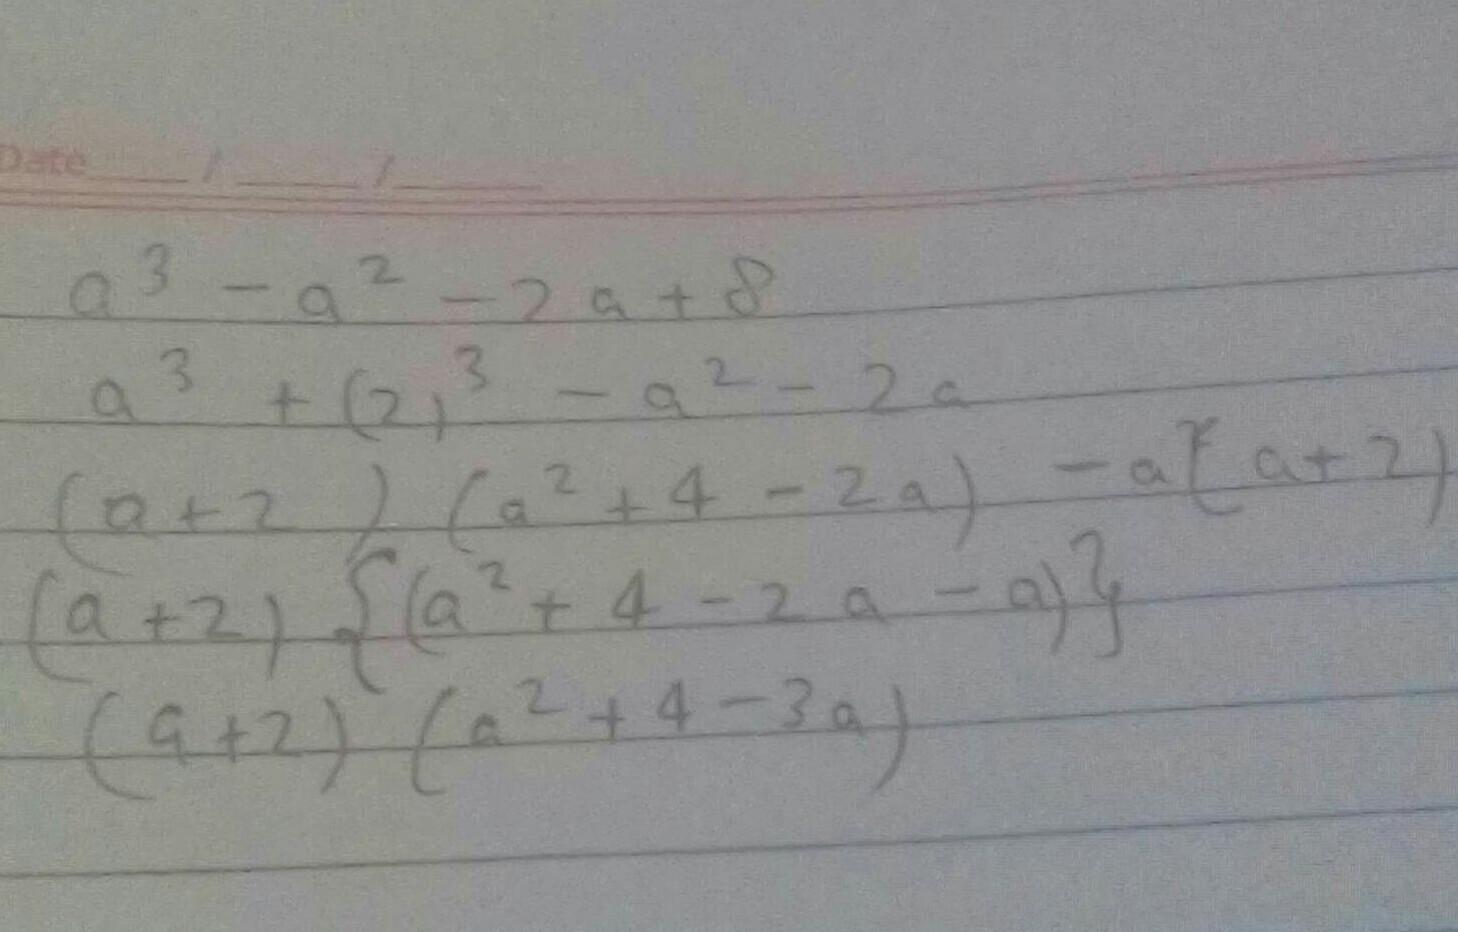 Date ___ / ___ / ___
a³ - a² - 2a + 8
a³ + (2)³ - a² - 2a
(a+2) (a² + 4 - 2a) - a(a+2)
(a+2) {(a² + 4 - 2a - a)}
(a+2) (a² + 4 - 3a)